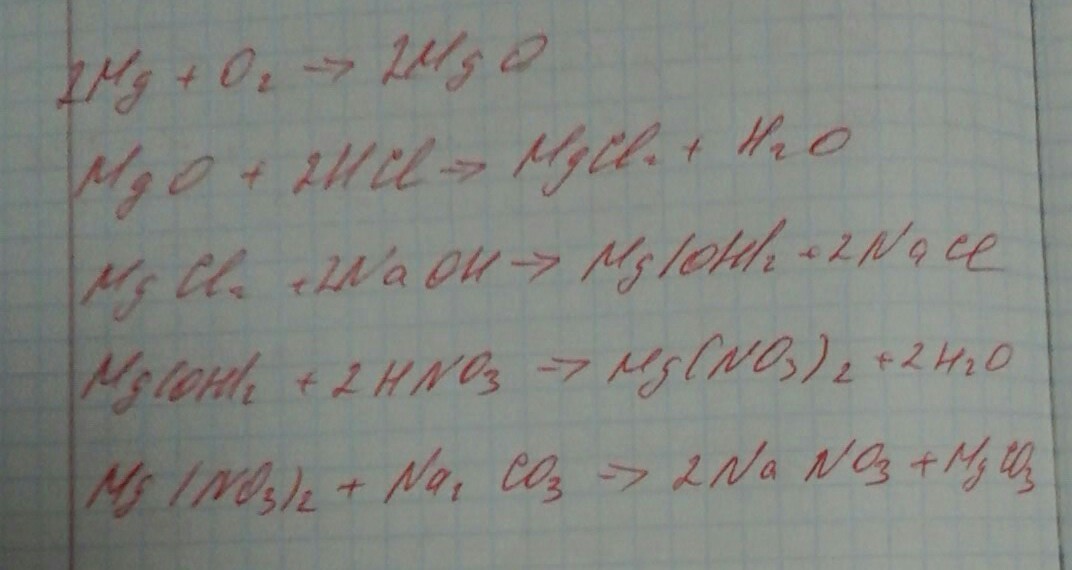 2Mg + O₂ → 2MgO
MgO + 2HCl → MgCl₂ + H₂O
MgCl₂ + 2NaOH → Mg(OH)₂ + 2NaCl
Mg(OH)₂ + 2HNO₃ → Mg(NO₃)₂ + 2H₂O
Mg(NO₃)₂ + Na₂CO₃ → 2NaNO₃ + MgCO₃